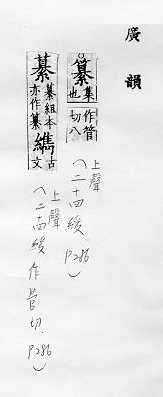 廣韻
纂集也作管切八
上聲
(二十四緩 P286)
纂纂組本亦作纂䌣古文
上聲
(二十四緩 作管切 P286)